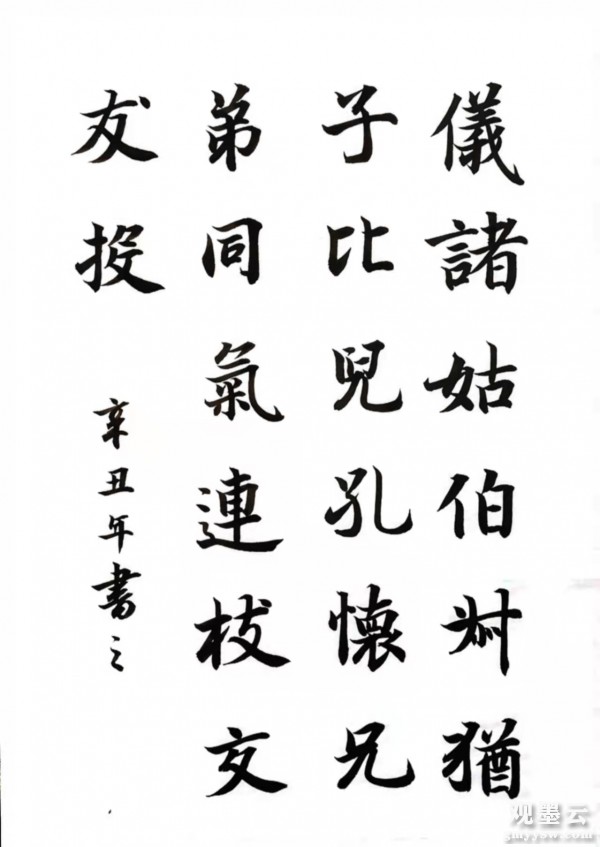 儀諸姑伯叔猶
子比兒孔懷兄
弟同氣連枝交
友投
辛丑年書之
观墨云